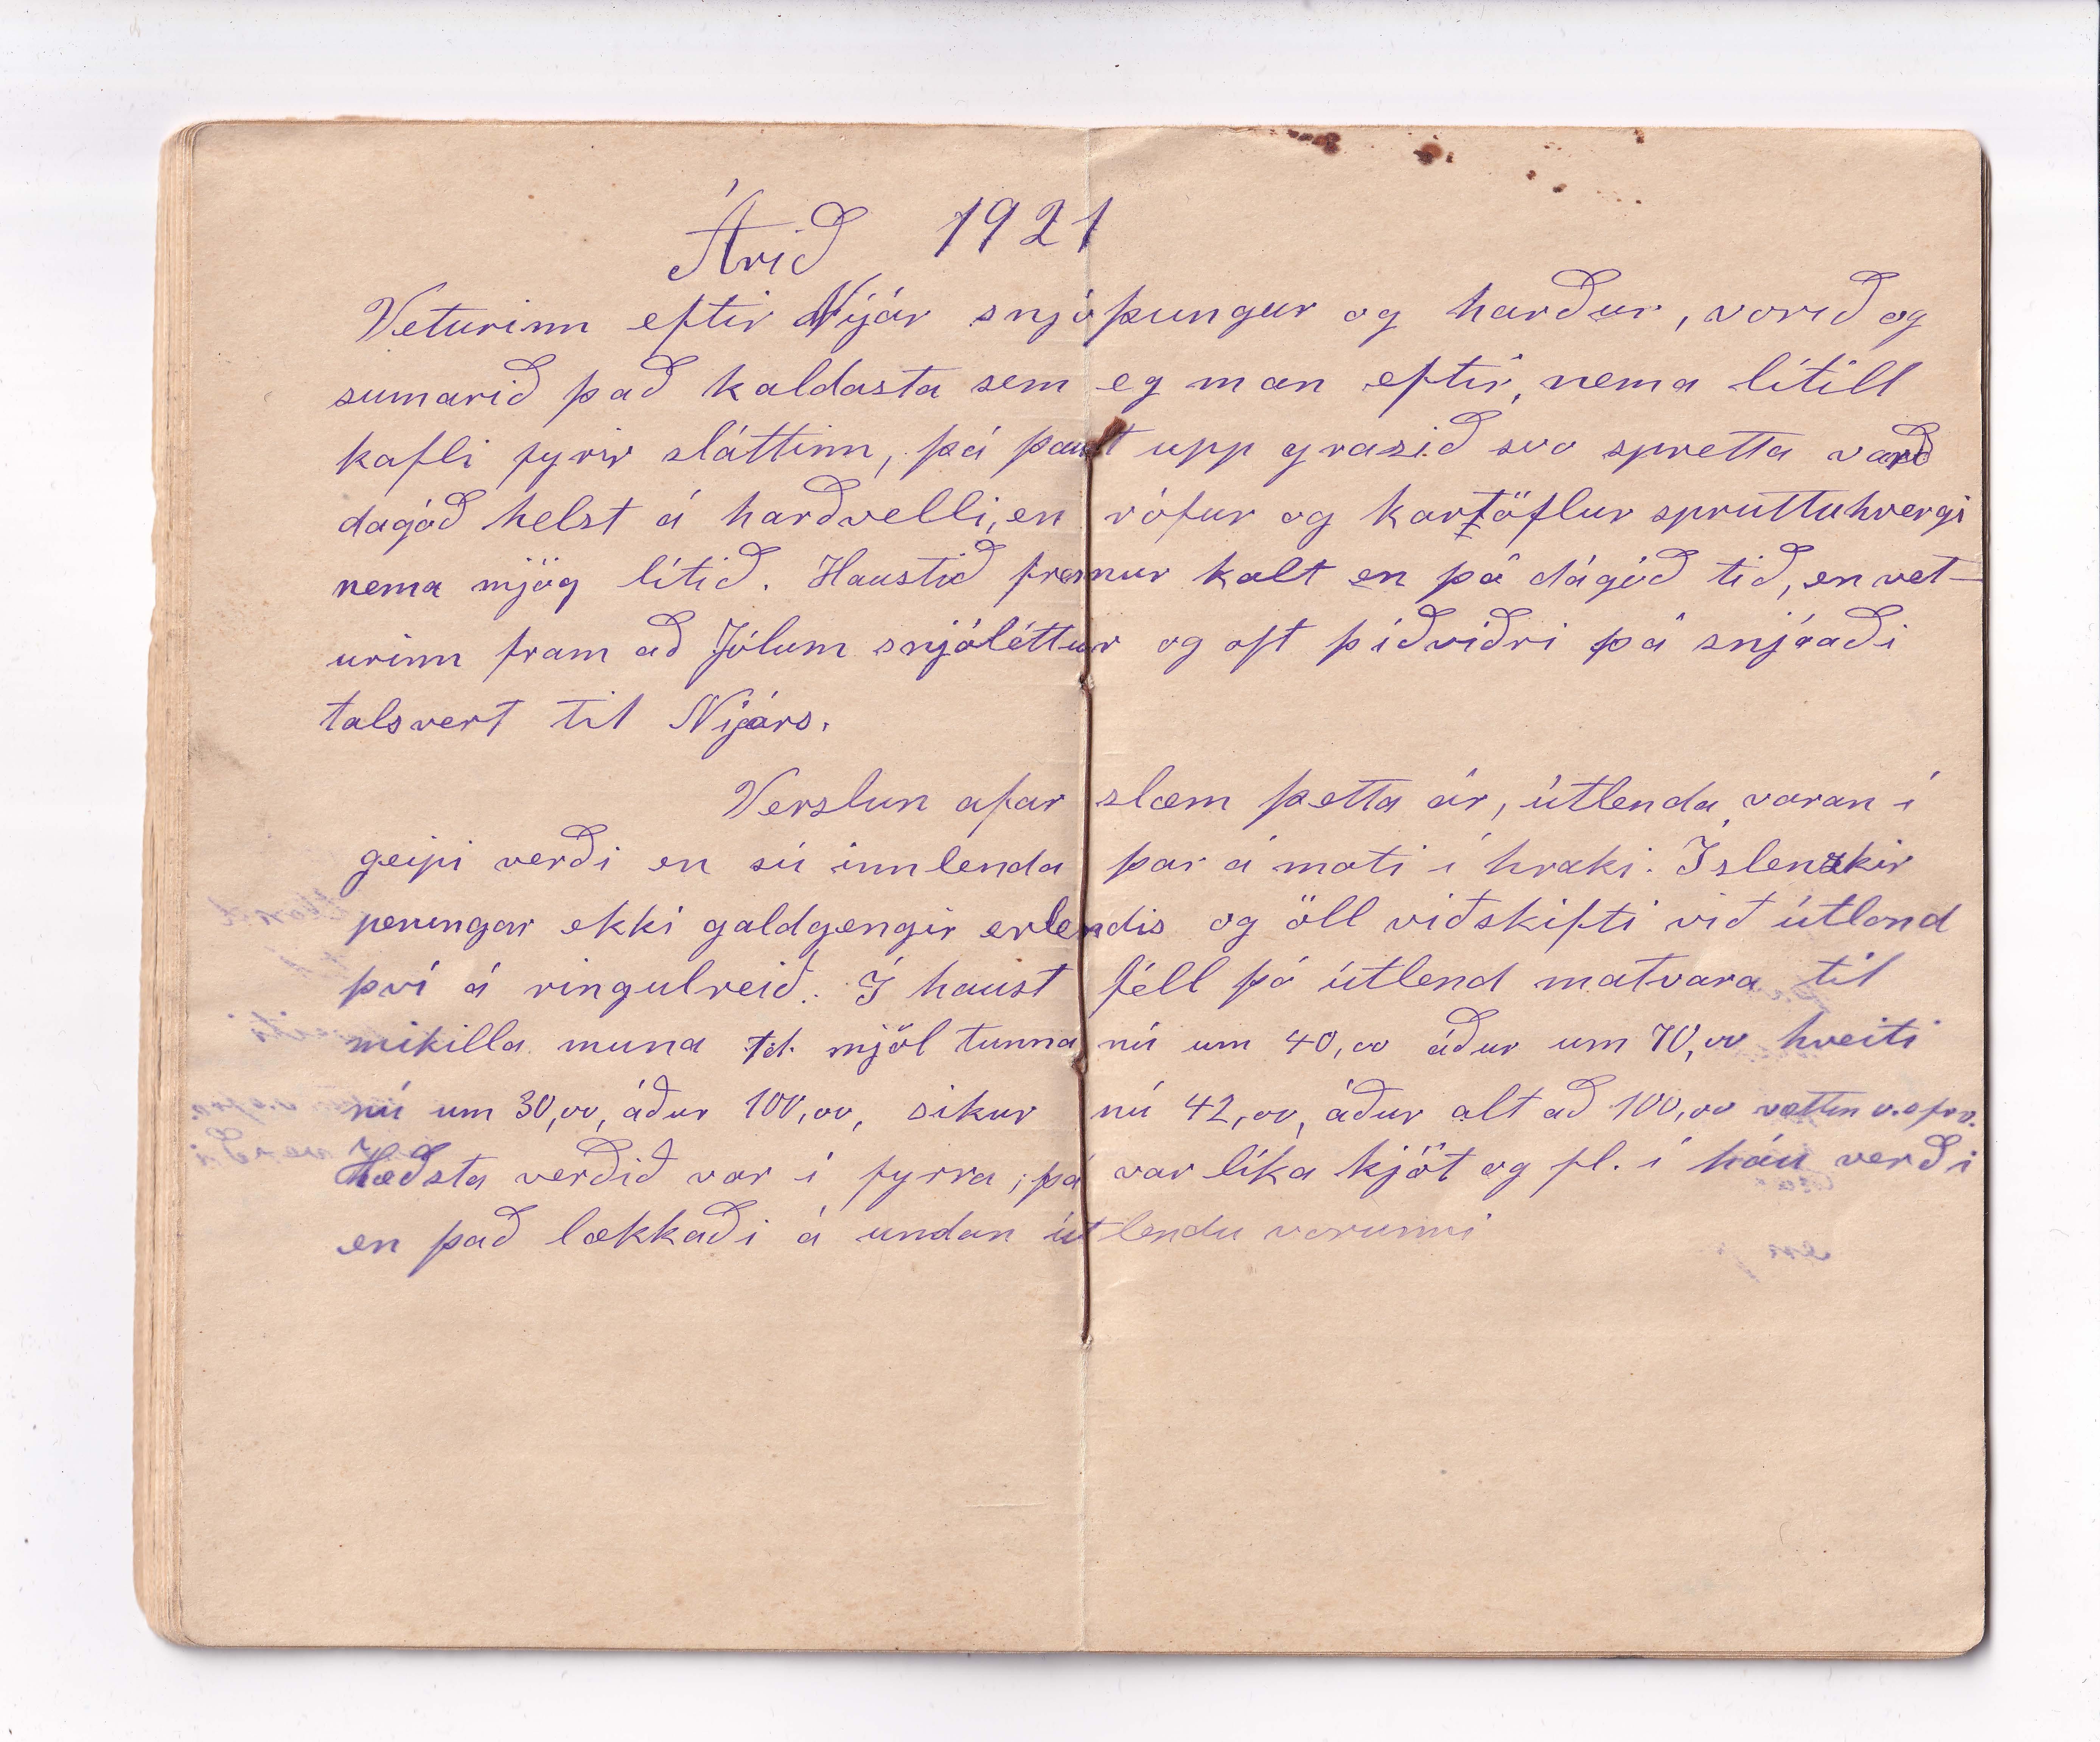 Árið 1921
Veturinn eftir Nýjár snjóþungur og harður, vorið og
sumarið það kaldasta sem eg man eftir, nema lítill
kafli fyrir sláttinn, þá þaut upp grasið svo spretta varð
dágóð helst á harðvelli, en rófur og kartöflur spruttu hvergi
nema mjög lítið. Haustið fremur kalt en þó dágóð tíð, en vet-
urinn fram að Jólum snjóléttur og oft þíðviðri þá snjóaði
talsvert til Nýjárs.
Verslun afar slæm þetta ár, útlenda varan í
geipi verði en sú innlenda þar á moti í hraki. Íslenzkir
peningar ekki galdgengir erlendis og öll viðskifti við útlond
því á ringulreið. Í haust féll þó útlend matvara til
mikilla muna td. mjöl tunna nú um 40,00 áður um 70,00 hveiti
nú um 30,00, áður 100,00, sikur nú 42,00, áður alt að 100,00 vættin
Hæðsta verðið var í fyrra, þá var líka kjöt og fl. í háu verði
en það lækkaði á undan útlendu vorunni